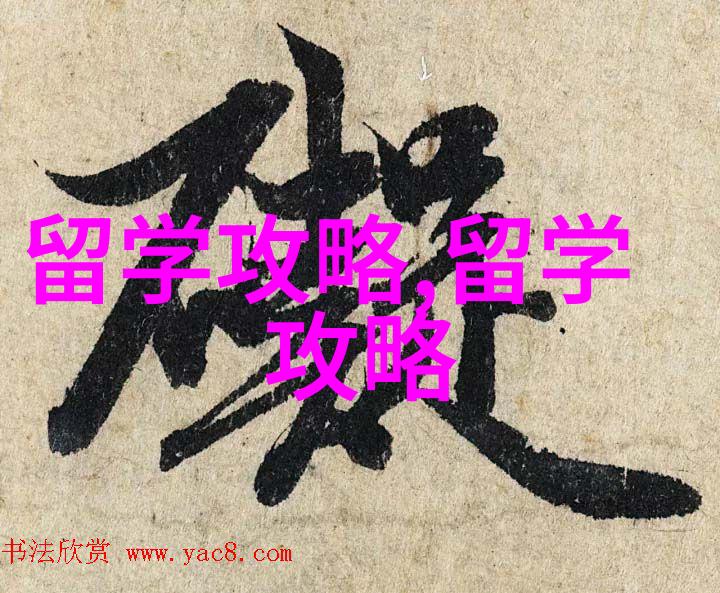 礙
留学攻略,留学
攻略
书法欣赏 www.yac8.com